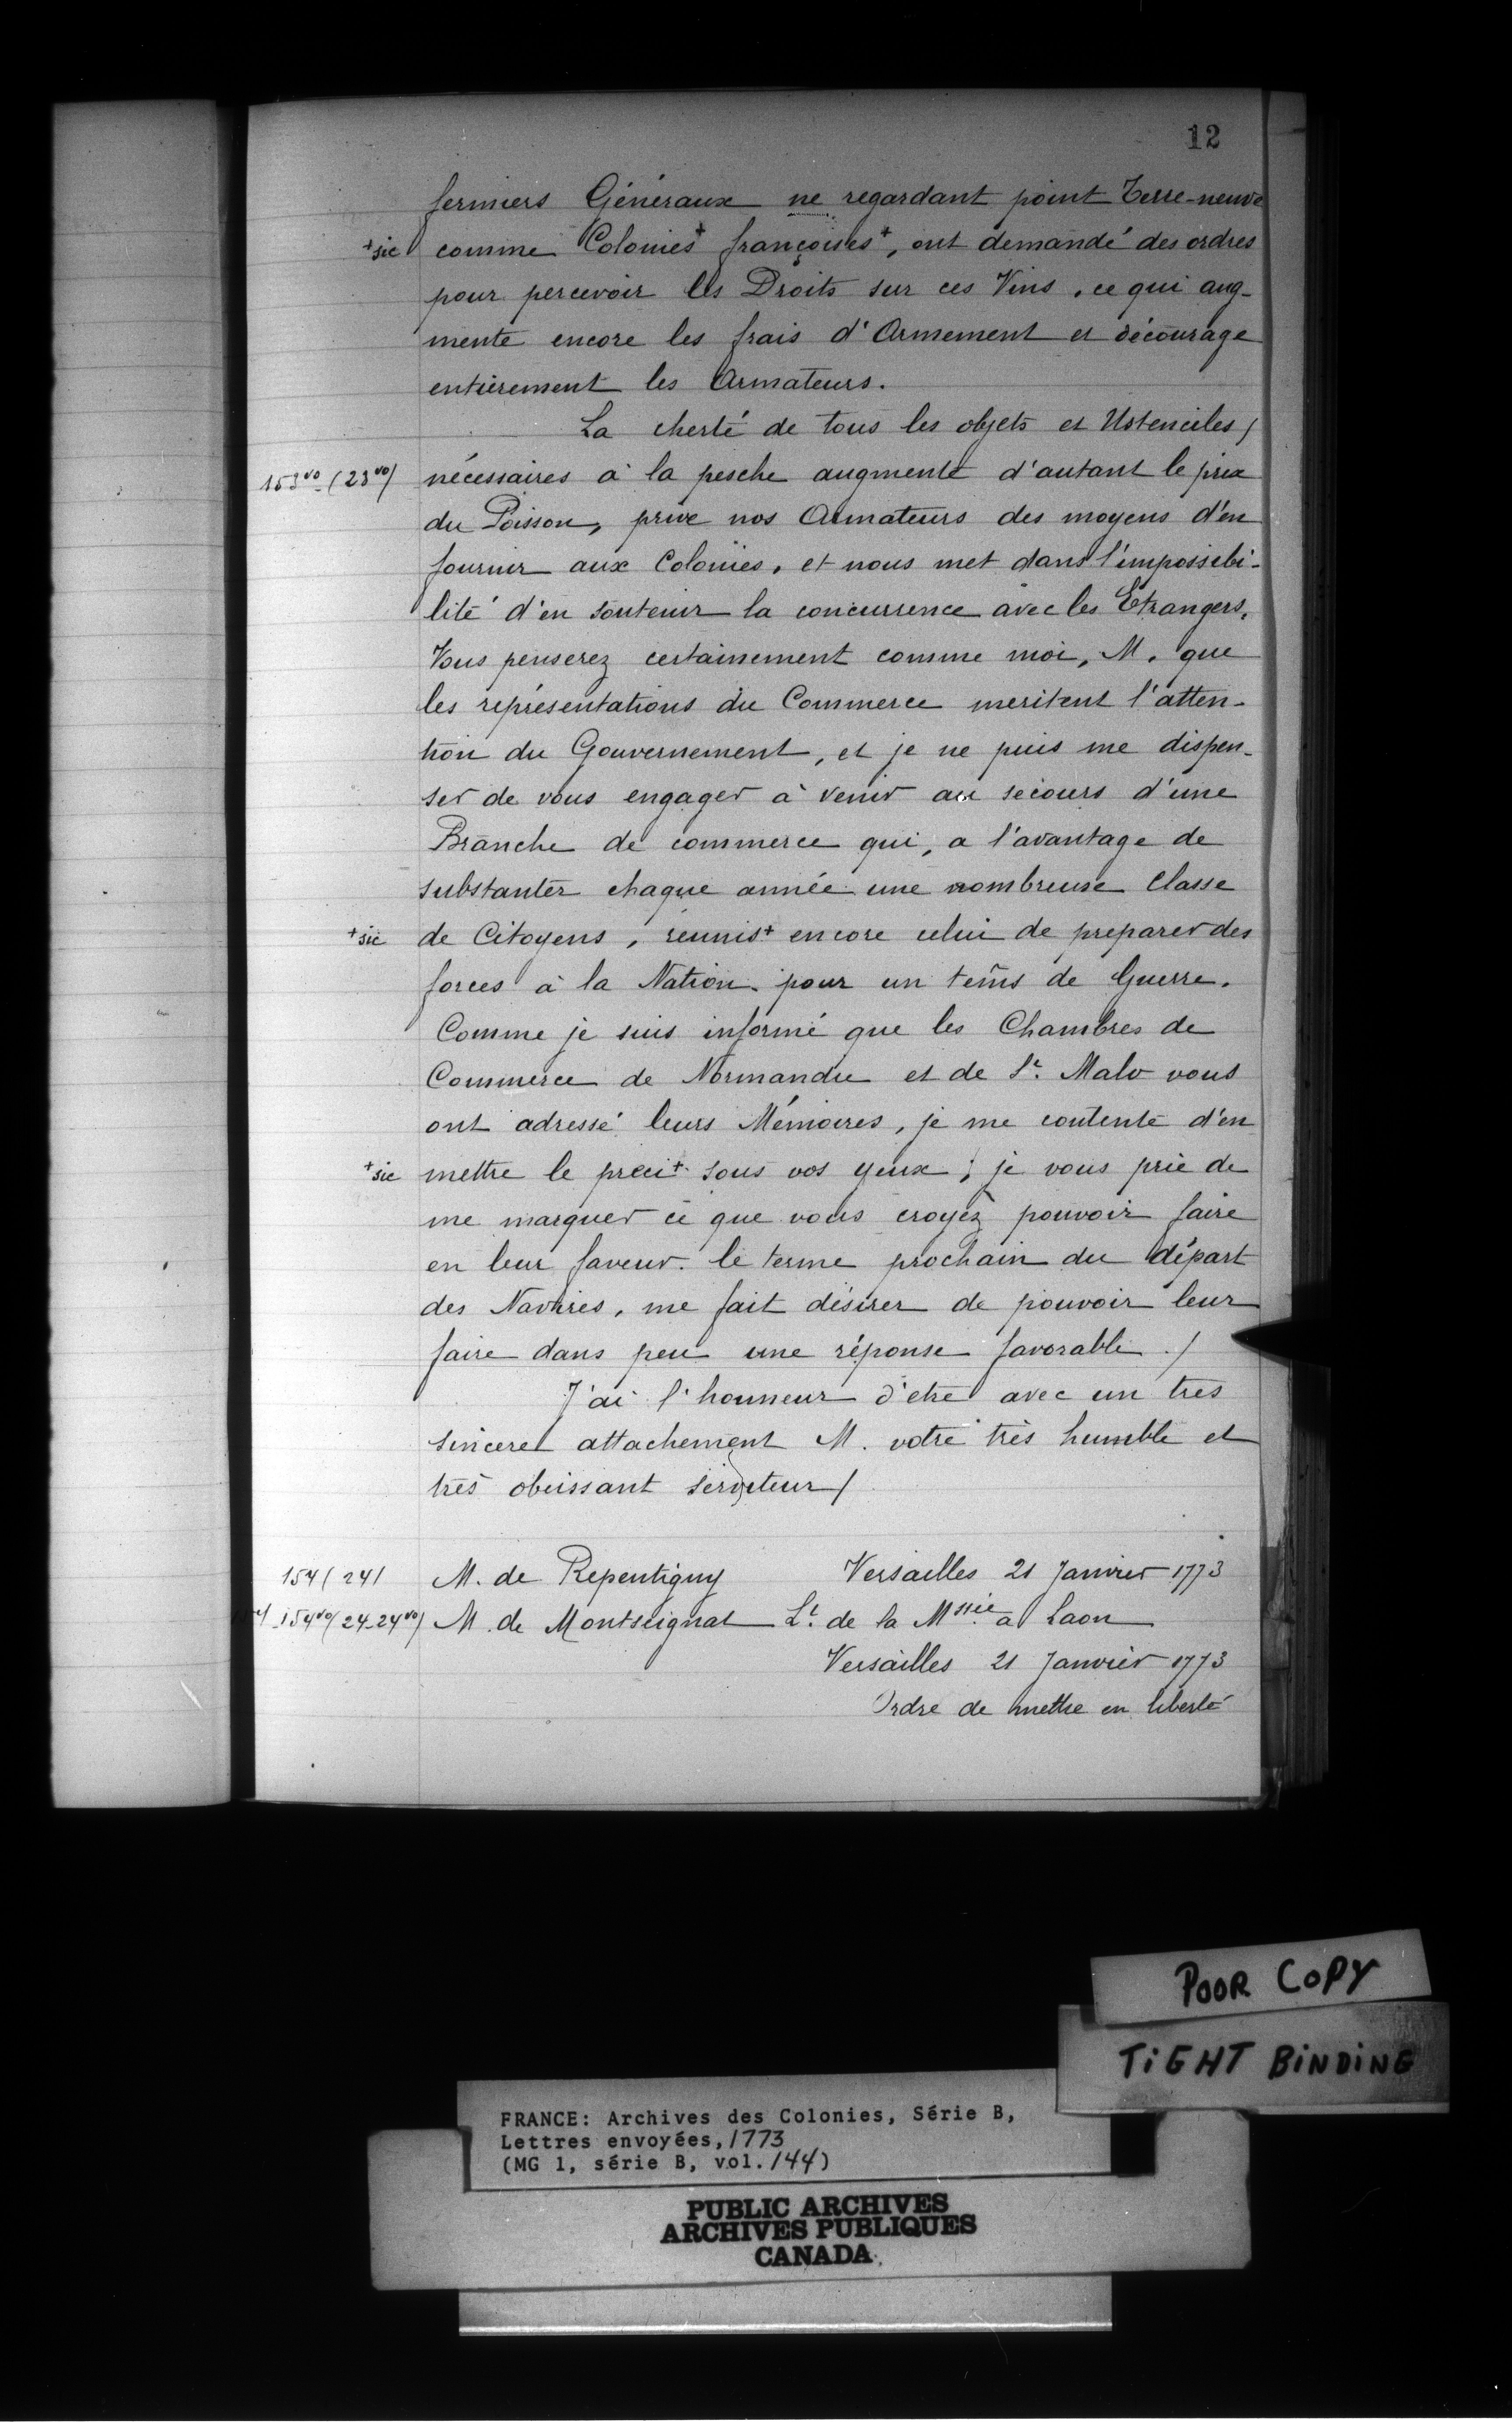 12
fermiers Généraux ne regardant point Terre-neuve
+sic comme Colonies+ françoises+, ont demandé des ordres
pour percevoir les Droits sur ces Vins, ce qui aug-
mente encore les frais d'Armement et décourage
entièrement les Armateurs.
La cherté de tous les objets et Ustenciles/
153vo (23vo) nécessaires à la pesche augmente d'autant le prix
du Poisson, prive nos Armateurs des moyens d'en
fournir aux Colonies, et nous met dans l'impossibi-
lité d'en soutenir la concurrence avec les Etrangers.
Vous penserez certainement comme moi, M. que
les représentations du Commerce meritent l'atten-
tion du Gouvernement, et je ne puis me dispen-
ser de vous engager à venir au secours d'une
Branche de commerce qui, a l'avantage de
substanter chaque année une nombreuse Classe
+sic de Citoyens, réunis+ encore celui de preparer des
forces à la Nation pour un tems de Guerre.
Comme je suis informé que les Chambres de
Commerce de Normandie et de St. Malo vous
ont adressé leurs Mémoires, je me contente d'en
+sic mettre le preci+ sous vos yeux; je vous prie de
me marquer ce que vous croyez pouvoir faire
en leur faveur. le terme prochain du départ
des Navires, me fait désirer de pouvoir leur
faire dans peu une réponse favorable ./
J'ai l'honneur d'etre avec un tres
sincere attachement M. votre très humble et
très obeissant serviteur/
154 (24) M. de Repentigny Versailles 21 Janvier 1773
154vo (24-24vo) M. de Montseignat Lt. de la Mssée à Laon
Versailles 21 Janvier 1773
Ordre de mettre en liberté
POOR COPY
TIGHT BINDING
FRANCE: Archives des Colonies, Série B,
Lettres envoyées, 1773
(MG 1, série B, vol. 144)
PUBLIC ARCHIVES
ARCHIVES PUBLIQUES
CANADA